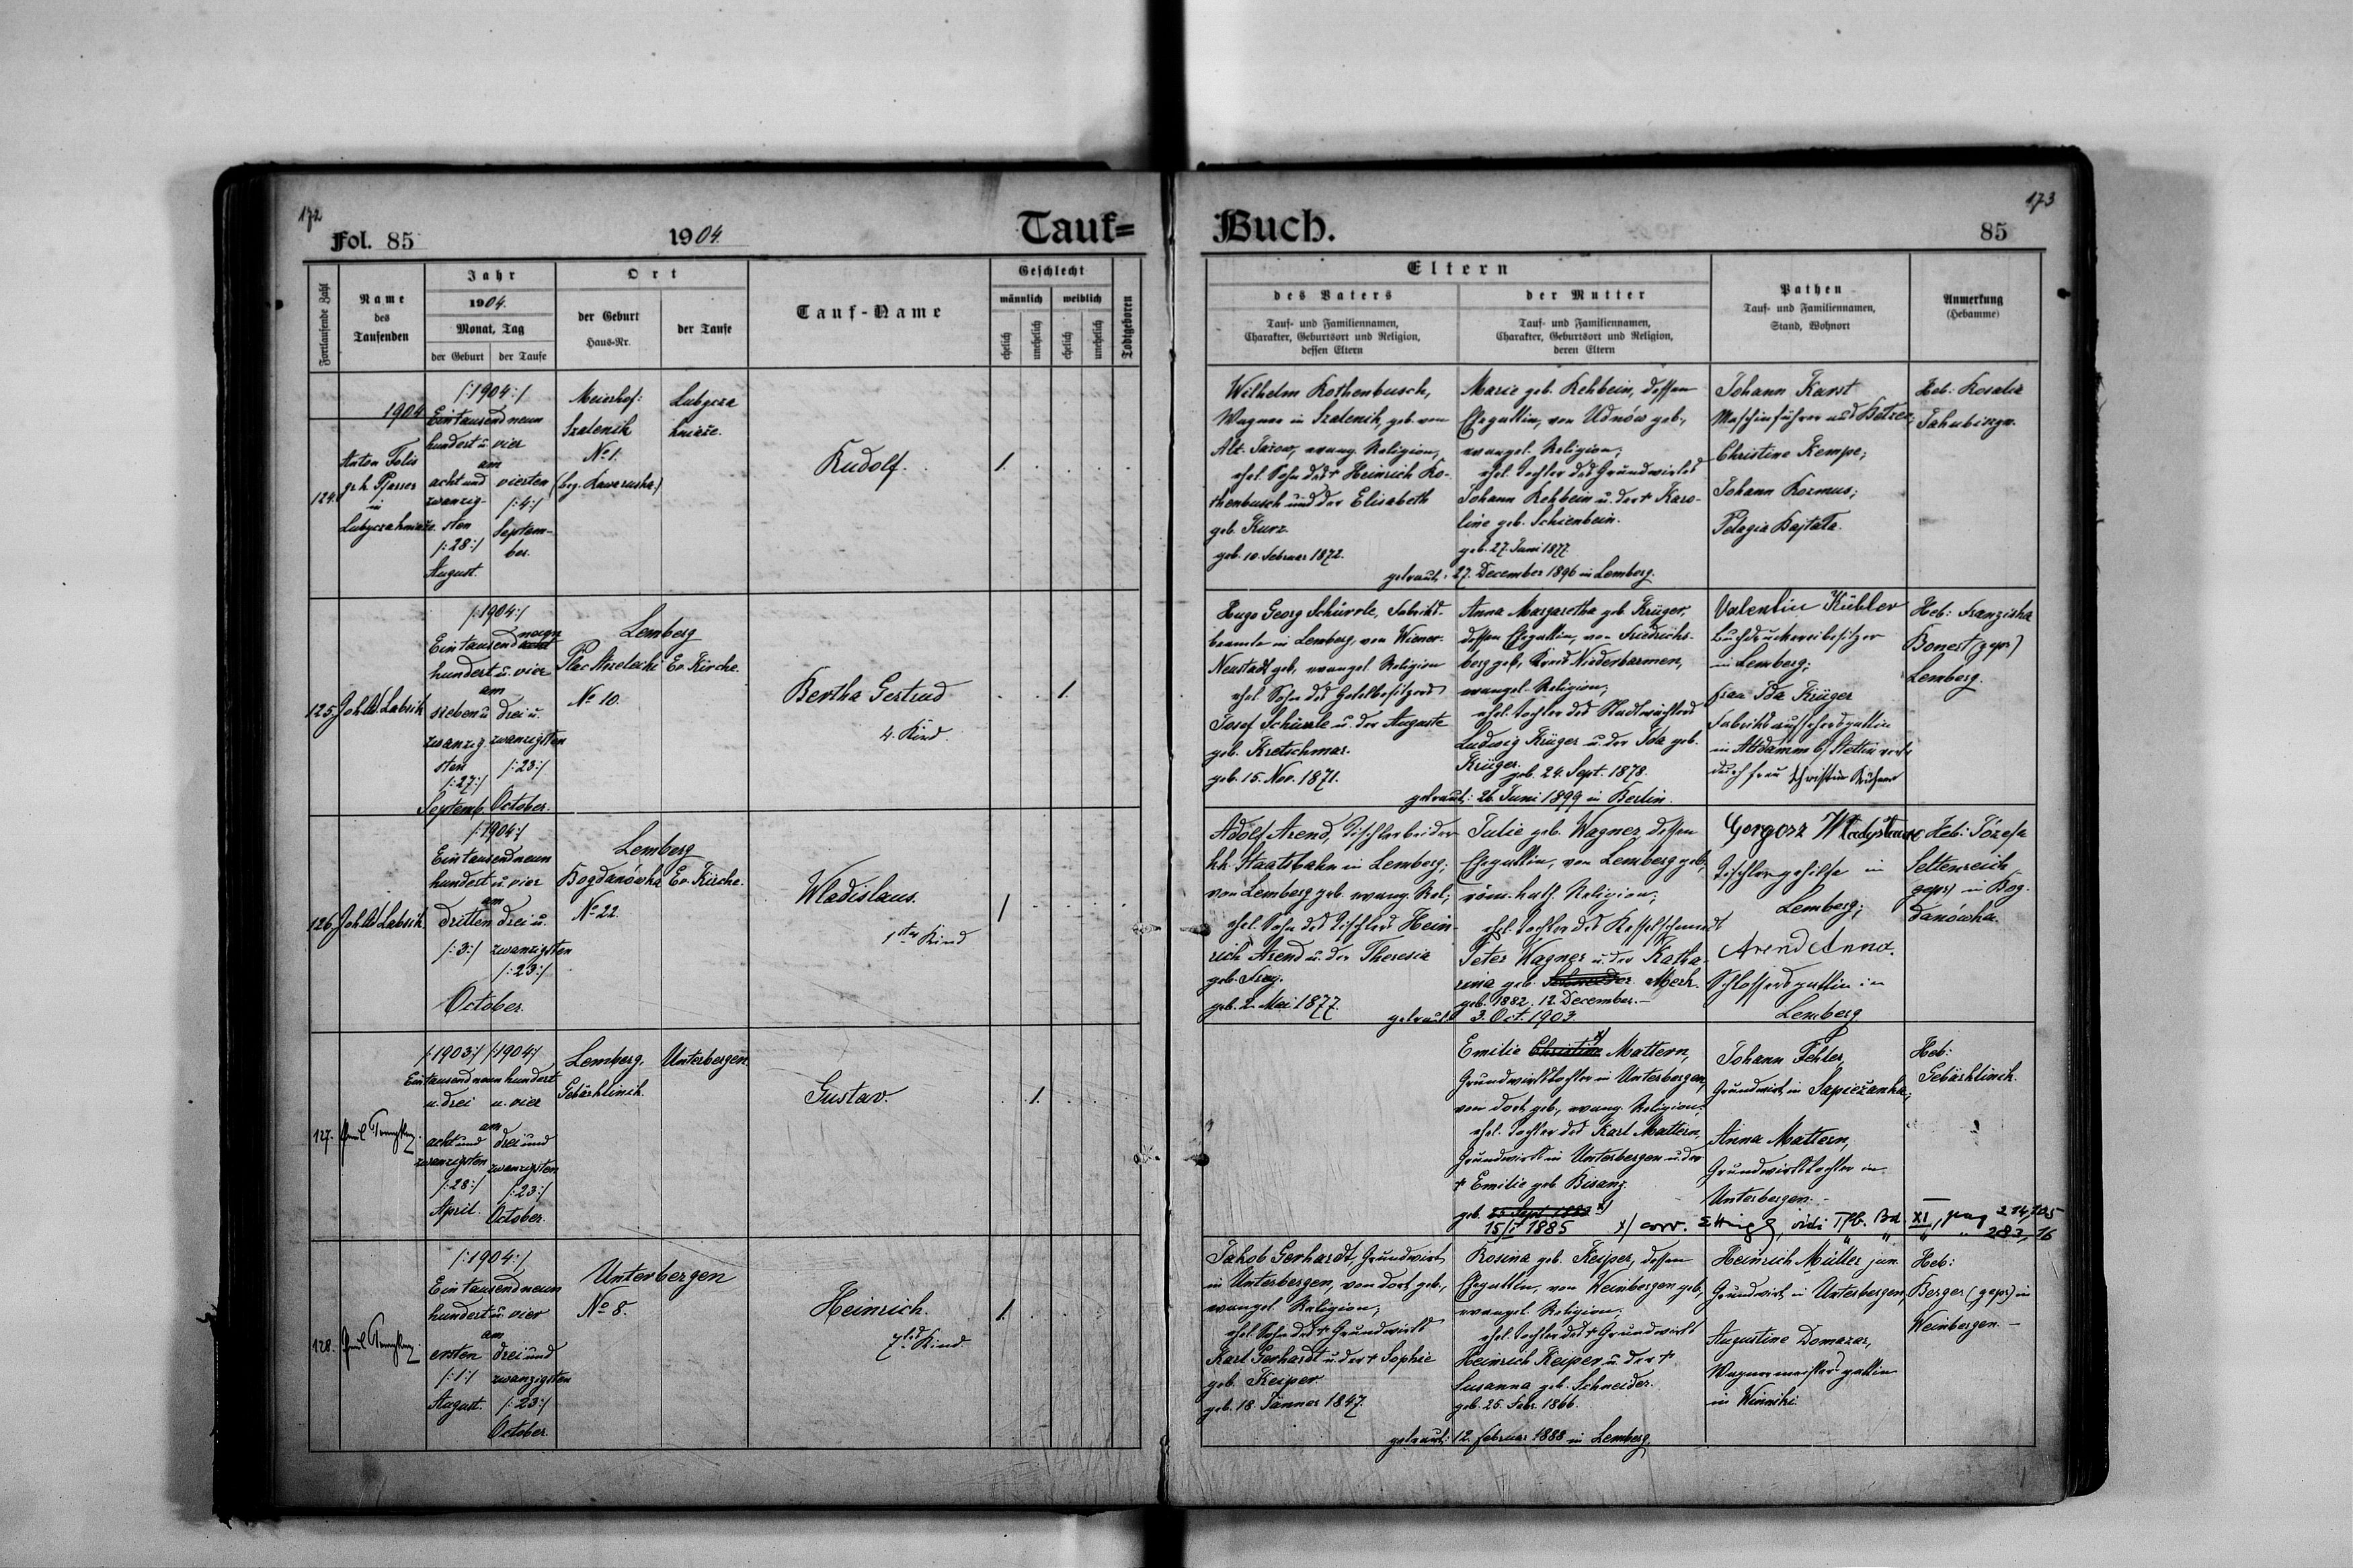 172
Fol. 85
1904
Tauf=
Fortlaufende Zahl
Name
des
Taufenden
Jahr
1904.
Monat, Tag
der Geburt
der Taufe
Ort
der Geburt
Haus-Nr.
der Taufe
Tauf-Name
Geschlecht
männlich
weiblich
ehelich
unehelich
ehelich
unehelich
Todtgeboren
1904
124.
Anton Folis
gr. k. Pfarrer
in
Lubyczakniaże.
/:1904:/
Eintausendneun
hundert u. vier
am
acht und
zwanzig-
sten
/:28:/
August.
vierten
/:4:/
Septem-
ber.
Meierhof:
Szalenik
No 1.
(bez. Rawaruska)
Lubycza
kniaże.
Rudolf.
1.
125.
/:1904:/
Eintausend neun
hundert u. vier
am
sieben u.
zwanzig-
sten
/:27:/
Septemb.
drei u.
zwanzigsten
/:23:/
October.
Lemberg
Plac Strzelecki
No 10.
Ev. Kirche.
Bertha Gertrud
4. Kind.
1.
126.
/:1904:/
Eintausendneun
hundert u. vier
am
dritten
/:3:/
drei u.
zwanzigsten
/:23:/
October.
Lemberg
Bogdanówka
No 22.
Ev. Kirche.
Wladislaus.
1stes Kind
1
127.
/:1903:/ /:1904:/
Eintausendneunhundert
u. drei u. vier
am
acht und
zwanzigsten
/:28:/
April.
drei und
zwanzigsten
/:23:/
October.
Lemberg.
Gebärklinik.
Unterbergen.
Gustav.
1.
128.
/:1904:/
Eintausendneun
hundert u. vier
am
ersten
/:1:/
August.
drei und
zwanzigsten
/:23:/
October.
Unterbergen
No 8.
Heinrich.
7tes Kind.
1.
173
Buch.
85
Eltern
des Vaters
Tauf- und Familiennamen,
Charakter, Geburtsort und Religion,
dessen Eltern
der Mutter
Tauf- und Familiennamen,
Charakter, Geburtsort und Religion,
deren Eltern
Pathen
Tauf- und Familiennamen,
Stand, Wohnort
Anmerkung
(Hebamme)
Wilhelm Rothenbusch,
Wagner in Szalenik, geb. von
Alt. Jażow, evang. Religion,
ehel. Sohn des + Heinrich Ro-
thenbusch und der Elisabeth
geb. Kurz.
geb. 10. Februar 1872.
Marie geb. Rehbein, dessen
Ehegattin, von Udnów geb.,
evangel. Religion;
ehel. Tochter des Grundwirtes
Johann Rehbein u. der + Karo-
line geb. Schienbein.
geb. 27. Juni 1877
getraut: 27. December 1896 in Lemberg.
Johann Karst
Maschinführer aus Belzec;
Christine Kempe;
Johann Kozmus;
Pelagia Bajtała.
Heb: Rosalie
Hugo Georg Schürrle, Fabriks-
beamte in Lemberg, von Wiener-
Neustadt geb., evangel. Religion
ehel. Sohn des Hotelbesitzers
Josef Schürrle u. der Auguste
geb. Kretschmar.
geb. 15. Nov. 1871.
Anna Margaretha geb. Krüger,
dessen Ehegattin, von Friedrichs-
berg geb., Kreis Niederbarmen,
evangel. Religion;
ehel. Tochter des Stadtwächters
Ludwig Krüger u. der Ida geb.
Krüger.
geb. 24. Sept. 1878.
getraut: 26. Juni 1899 in Berlin.
Valentin Kübler
Buchdruckereibesitzer
in Lemberg;
Frau Ida Krüger
Fabriksaufsehersgattin
in Altdamm b/ Stettin
durch Frau Christine
Heb: Franziska
Bonest (gepr)
Lemberg.
Adolf Arend, Tischler bei der
kk. Staatsbahn in Lemberg;
von Lemberg geb. evang. Rel.,
ehel. Sohn des Tischlers Hein-
rich Arend u. der Theresia
geb. Frey.
geb. 2. Mai 1877.
Julie geb. Wagner, dessen
Ehegattin, von Lemberg geb.,
röm.-kath. Religion;
ehel. Tochter des Kesselschmied
Peter Wagner u. der Katha-
rina geb. Schneider Merk.
geb. 1882. 12. December.-
getraut: 3. Oct. 1903.
Gorgosz Władysław
Tischlergehilfe in
Lemberg;
Arend Anna.
Schlossersgattin in
Lemberg
Heb: Józefa
Seltenreich
(gepr) in Bog-
danówka.
Emilie Christine x) Mattern,
Grundwirtstochter in Unterbergen,
von dort geb., evang. Religion;
ehel. Tochter des Karl Mattern,
Grundwirts in Unterbergen u. der
+ Emilie geb. Bisanz.
15/I 1885
x) corr. vidi Tfb. Bd. XI, pag 214,105
" " " " 283, 16
Johann Fehler,
Grundwirt in Sapieżanka;
Anna Mattern,
Grundwirtstochter in
Unterbergen.-
Heb:
Gebärklinik.
Jakob Gerhardt, Grundwirt
in Unterbergen, von dort geb.,
evangel. Religion;
ehel. Sohn des + Grundwirts
Karl Gerhardt u. der + Sophie
geb. Keiper.
geb. 18. Jänner 1847.
Rosina geb. Keiper, dessen
Ehegattin, von Weinbergen geb.,
evangel. Religion;
ehel. Tochter des + Grundwirts
Heinrich Keiper u. der +
Susanna geb. Schneider.
geb. 25. Febr. 1866.
getraut: 12. Februar 1888 in Lemberg.
Heinrich Müller jun.
Grundwirt in Unterbergen,
Augustine Domazar,
Wagnermeistersgattin
in Winniki.
Heb:
Berger (gepr) in
Weinbergen.-